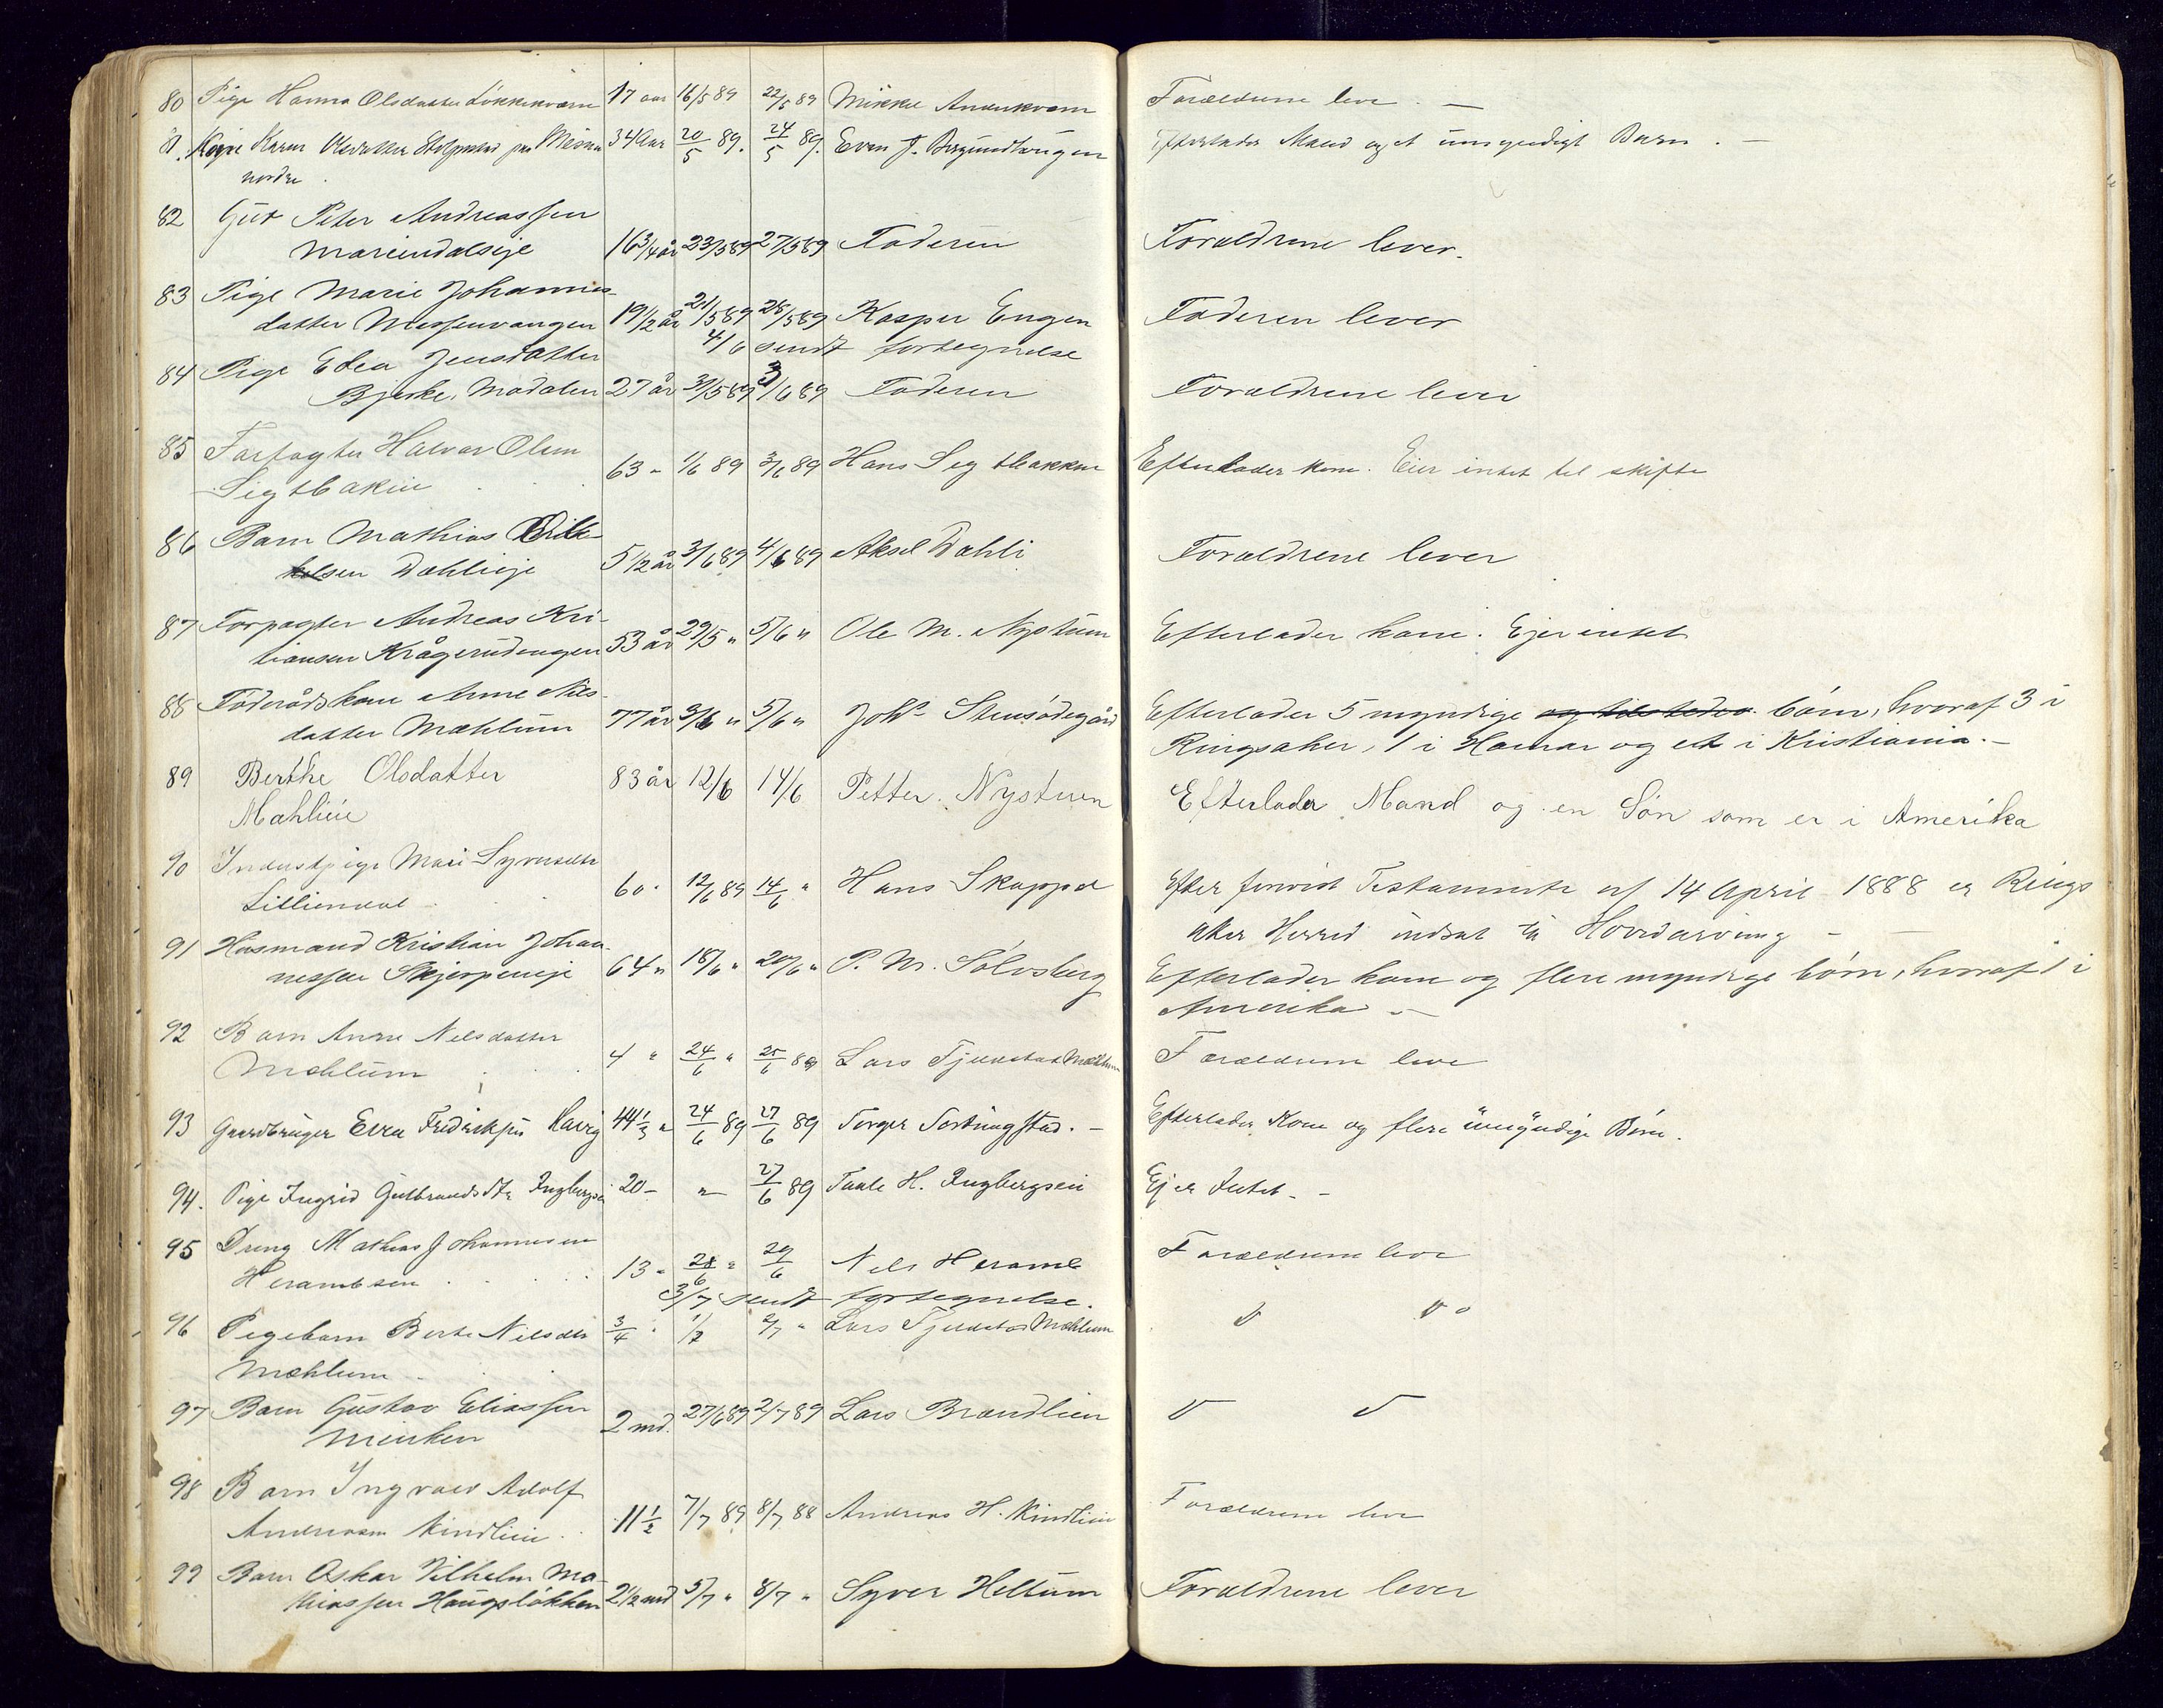 80 Pige Hanna Olsdatter Løkkekværn 17 aar 16/5 89 22/5 89 Mikkel Andenkværn Forældrene leve. —
81. Kone Karen Olsdatter Stolpestad paa Messen 34 Aar 20/5 89. 24/5 89. Even J. Bergundhaugen Efterlader Mand og et umyndigt Barn. —
nordre.
82 Gut Peter Andreassen
Mariendalseje 16 3/4 år 23/5 89 27/5 89 Faderen Forældrene lever.
83 Pige Marie Johannes-
datter Messenvangen 19 1/2 år 21/5 89 28/5 89 Kasper Engen Faderen lever
4/6 sendt fortegnelse
84 Pige Edea Jensdatter
Bjerke, Modalen 27 år 31/5 89 3/6 89 Faderen Forældrene lever
85 Forpagter Halvor Olsen
Sigtbakken 63 - 1/6 89 3/6 89 Hans Sigtbakken Efterlader kone. Eier intet til skifte
86 Barn Mathias Erik-
sen Dæhlieje 5 1/2 år 3/6 89 4/6 89 Aksel Dæhli Forældrene lever
87 Forpagter Andreas Kri-
tiansen Krågerudengen 53 år 29/5 " 5/6 " Ole M. Nystuen Efterlader kone. Ejer intet
88 Føderådskone Anne Nils-
datter Mæhlum 77 år 3/6 " 5/6 " Johs Stensødegård Efterlader 5 myndige og tilstedev. børn, hvoraf 3 i
Ringsaker, 1 i Hamar og et i Kristiania. —
89 Berthe Olsdatter
Mæhlieie 83 år 12/6 14/6 Petter Nystuen Efterlader Mand og en Søn som er i Amerika
90 Inderstpige Mari Syversdtr
Lilliendal 60 " 12/6 89 14/6 " Hans Skappel Efter forevist Testamente af 14 April 1888 er Rings
aker Herred indsat til Hovedarving —
91 Husmand Kristian Johan-
nessen Skjerpeneje 64 " 18/6 " 20/6 " P. M. Sølvsberg Efterlader kone og flere myndige børn, hvoraf 1 i
Amerika. —
92 Barn Anne Nilsdatter
Mæhlum 4 " 24/6 " 25/6 89 Lars Fjeldstad Mæhlum Forældrene leve
93 Gaardbruger Even Fredriksen 44 1/3 " 24/6 89 27/6 89 Torger Sortungstad. — Efterlader Kone og flere umyndige Børn.
94. Pige Ingrid Gulbrandsdtr Ingbergsen 20 — " — 27/6 89 Taale H. Ingbergseie Ejer Intet. —
95 Dreng Mathias Johannesen
Herambsen 13 " 28/6 " 29/6 Nils Heramb Forældrene leve
3/7 sendt fortegnelse.
96 Pigebarn Berte Nilsdtr 3/4 " 1/7 2/7 " Lars Fjeldstad Mæhlum " "
Mæhlum
97 Barn Gustav Eliassen
Meirken 2 md. 27/6 89 2/7 89 Lars Brændlien " "
98 Barn Ingvald Adolf
Andreasen Kindlien 11 1/2 7/7 89 8/7 88 Andreas H. Kindlien Forældrene leve
99 Barn Oskar Vilhelm Ma-
thiassen Haugsløkken 2 1/2 md 5/7 " 8/7 " Syver Heltum Forældrene lever